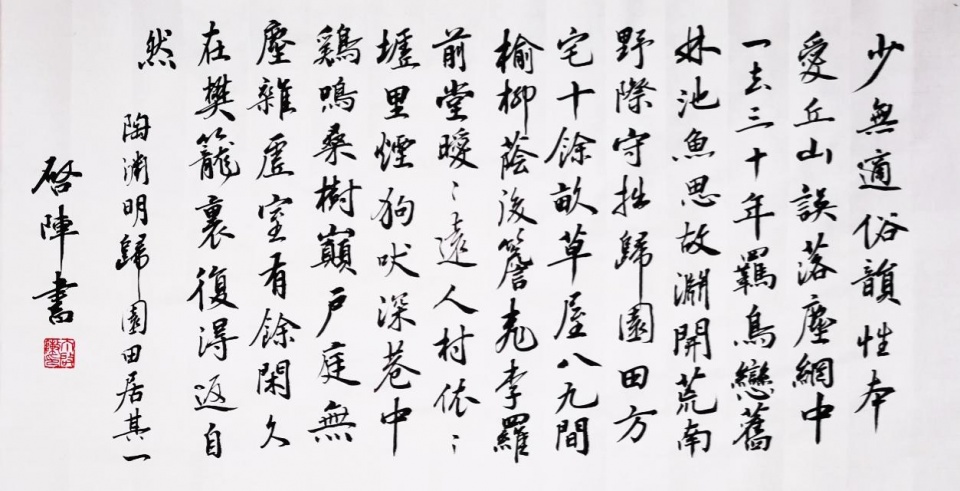 少無適俗韻性本
愛丘山誤落塵網中
一去三十年羈鳥戀舊
林池魚思故淵開荒南
野際守拙歸園田方
宅十餘畝草屋八九間
榆柳蔭後簷桃李羅
前堂曖〻遠人村依〻
墟里煙狗吠深巷中
鷄鳴桑樹巔戶庭無
塵雜虛室有餘閑久
在樊籠裏復得返自
然
陶淵明歸園田居其一
啓陣書